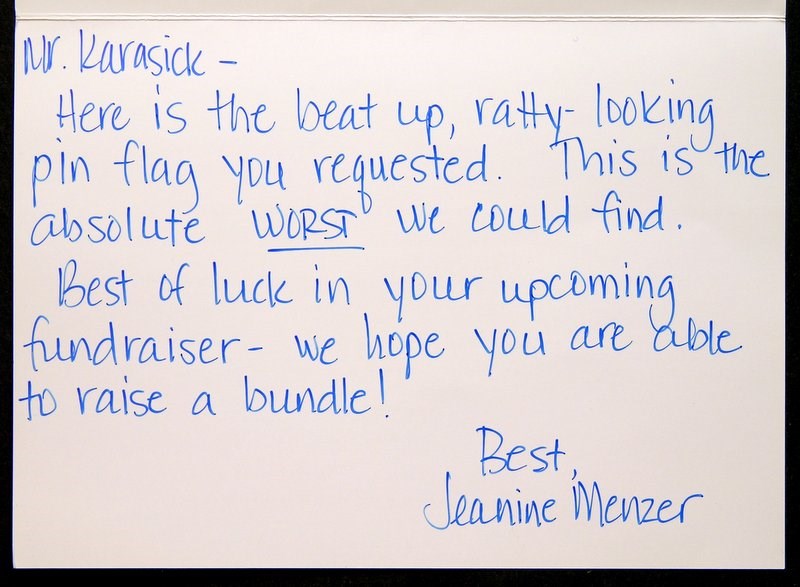 Mr. Karasick -
Here is the beat up, ratty-looking
pin flag you requested. This is the
absolute WORST we could find.
Best of luck in your upcoming
fundraiser- we hope you are able
to raise a bundle!
Best,
Jeanine Menzer